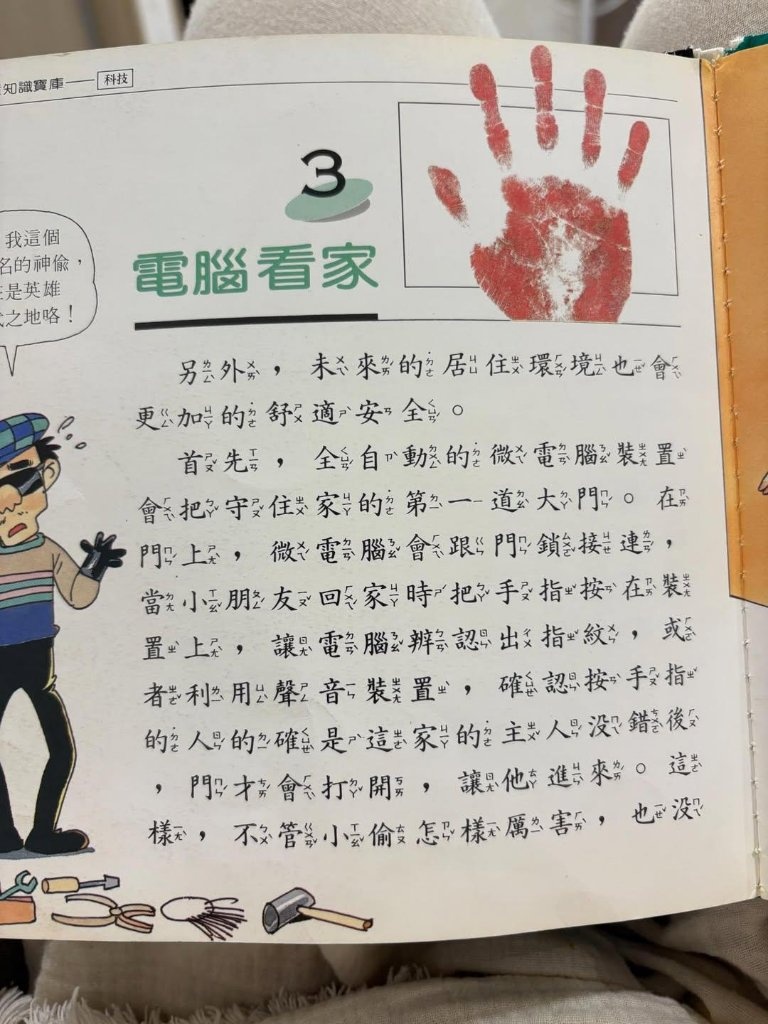 知識寶庫——科技
3
電腦看家
我這個
名的神偷，
是英雄
之地咯！
另外，未來的居住環境也會
更加的舒適安全。
首先，全自動的微電腦裝置
會把守住家的第一道大門。在
門上，微電腦會跟門鎖接連，
當小朋友回家時把手指按在裝
置上，讓電腦辨認出指紋，或
者利用聲音裝置，確認按手指
的人的確是這家的主人沒錯後
，門才會打開，讓他進來。這
樣，不管小偷怎樣厲害，也沒